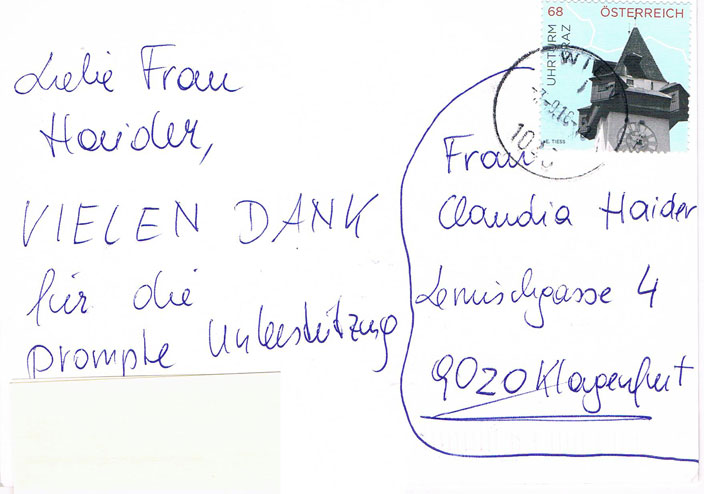 Liebe Frau
Haider,
VIELEN DANK
für die
prompte Unterstützung
68 ÖSTERREICH
UHRTURM
GRAZ
E. TIESS
Frau
Claudia Haider
Lemischgasse 4
9020 Klagenfurt